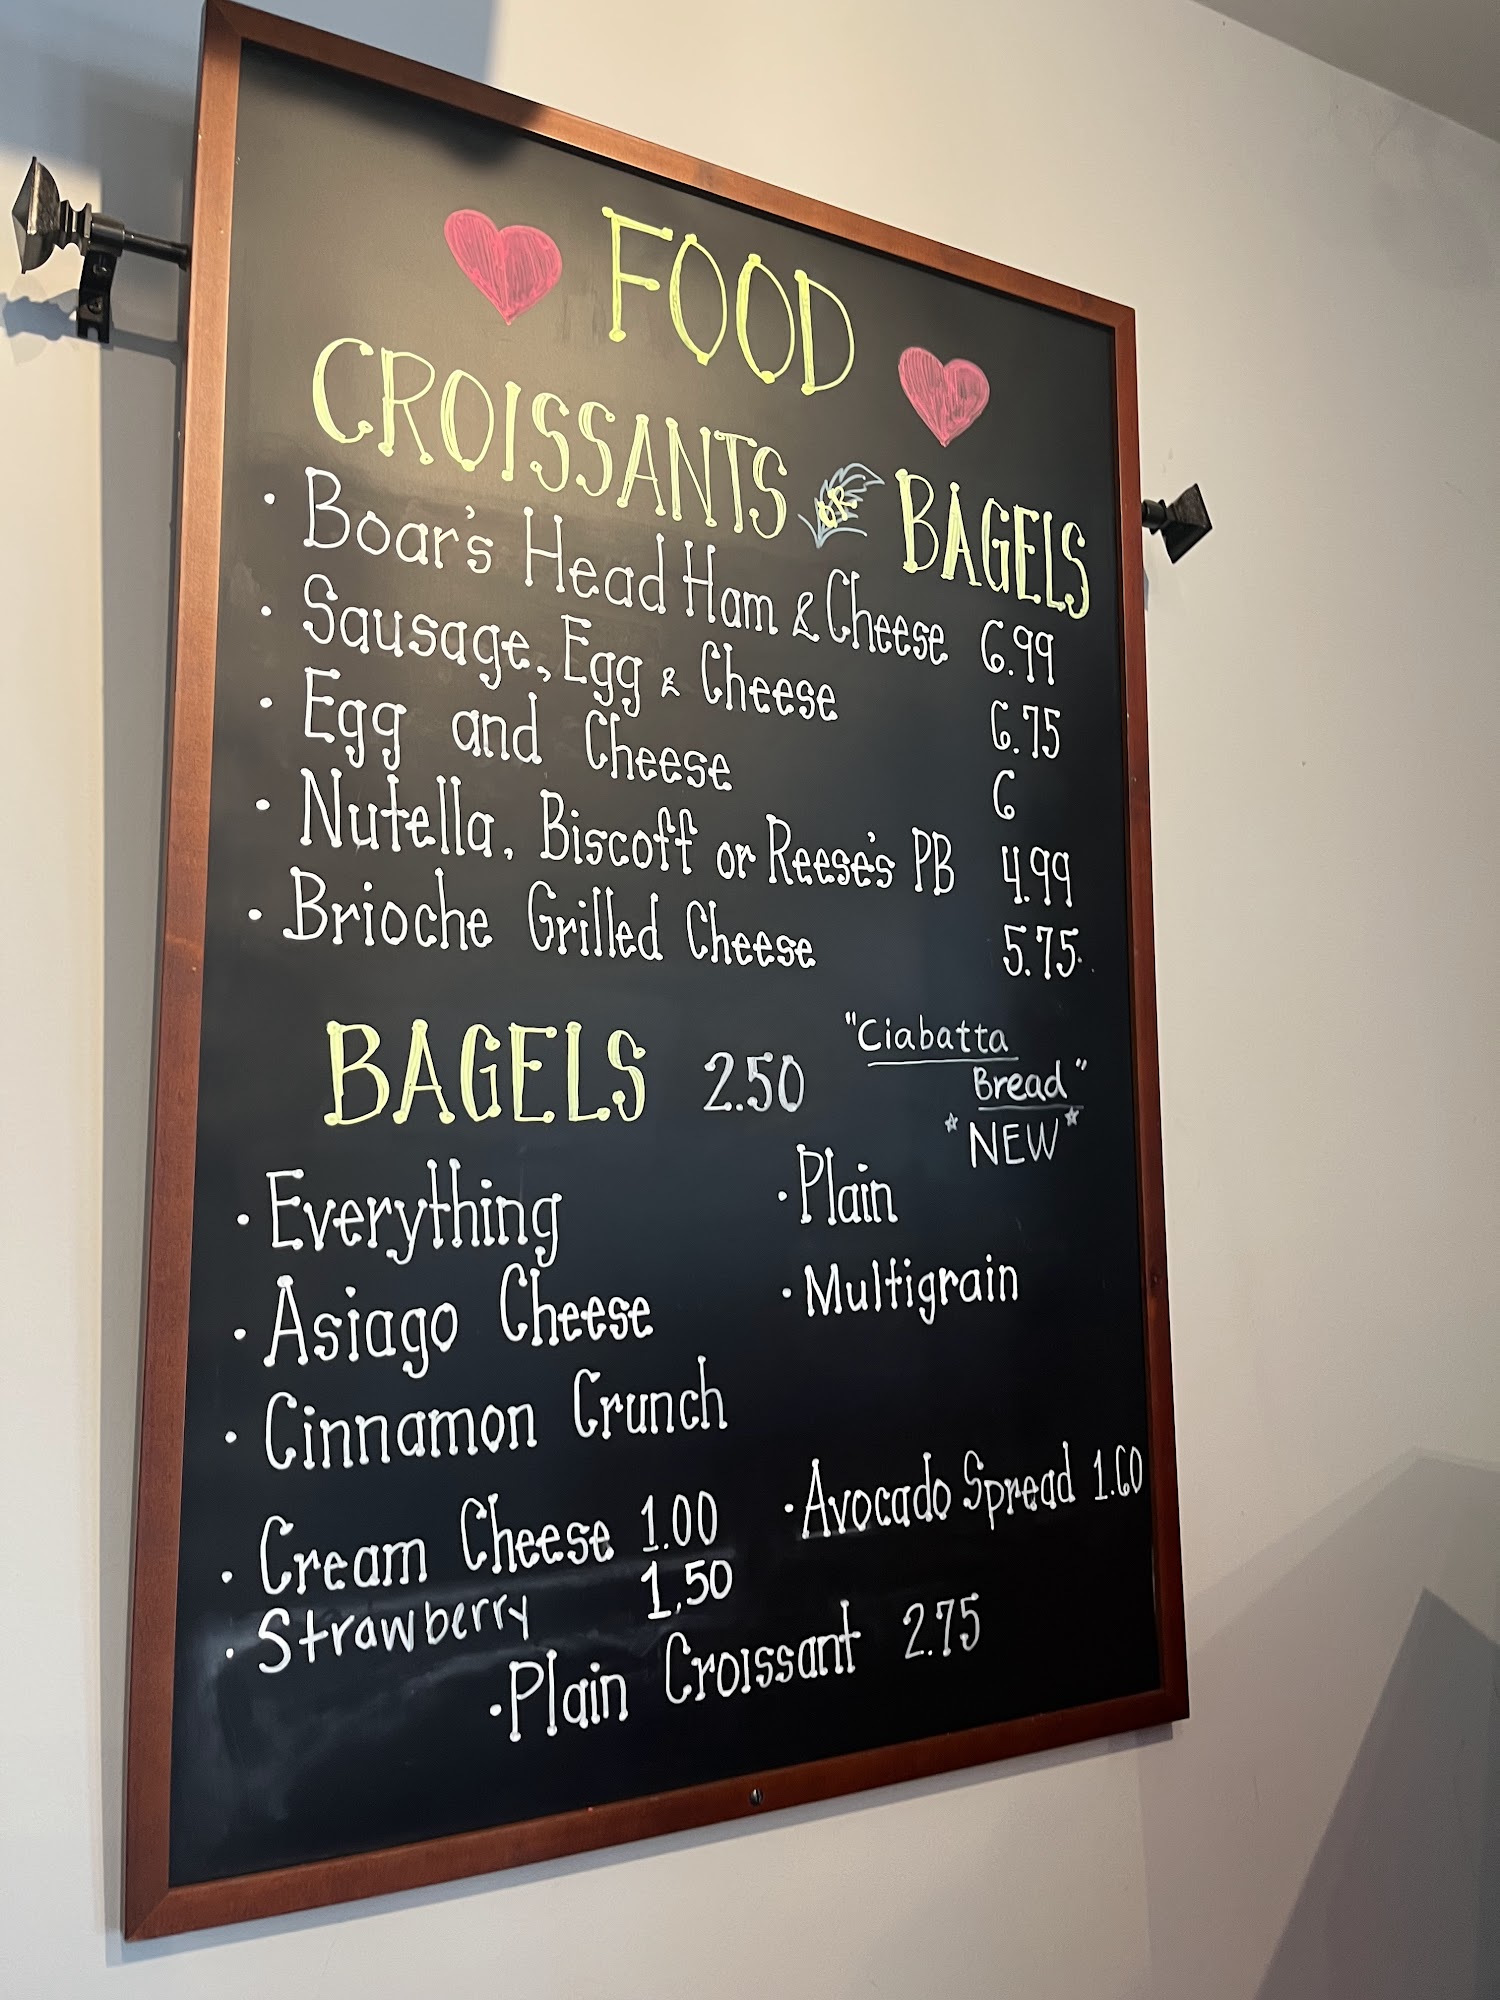 FOOD
CROISSANTS OR BAGELS
· Boar's Head Ham & Cheese 6.99
· Sausage, Egg & Cheese 6.75
· Egg and Cheese 6
· Nutella, Biscoff or Reese's PB 4.99
· Brioche Grilled Cheese 5.75
BAGELS 2.50
"Ciabatta
Bread"
*NEW*
· Everything
· Plain
· Asiago Cheese
· Multigrain
· Cinnamon Crunch
· Cream Cheese 1.00
· Avocado Spread 1.60
· Strawberry 1.50
· Plain Croissant 2.75